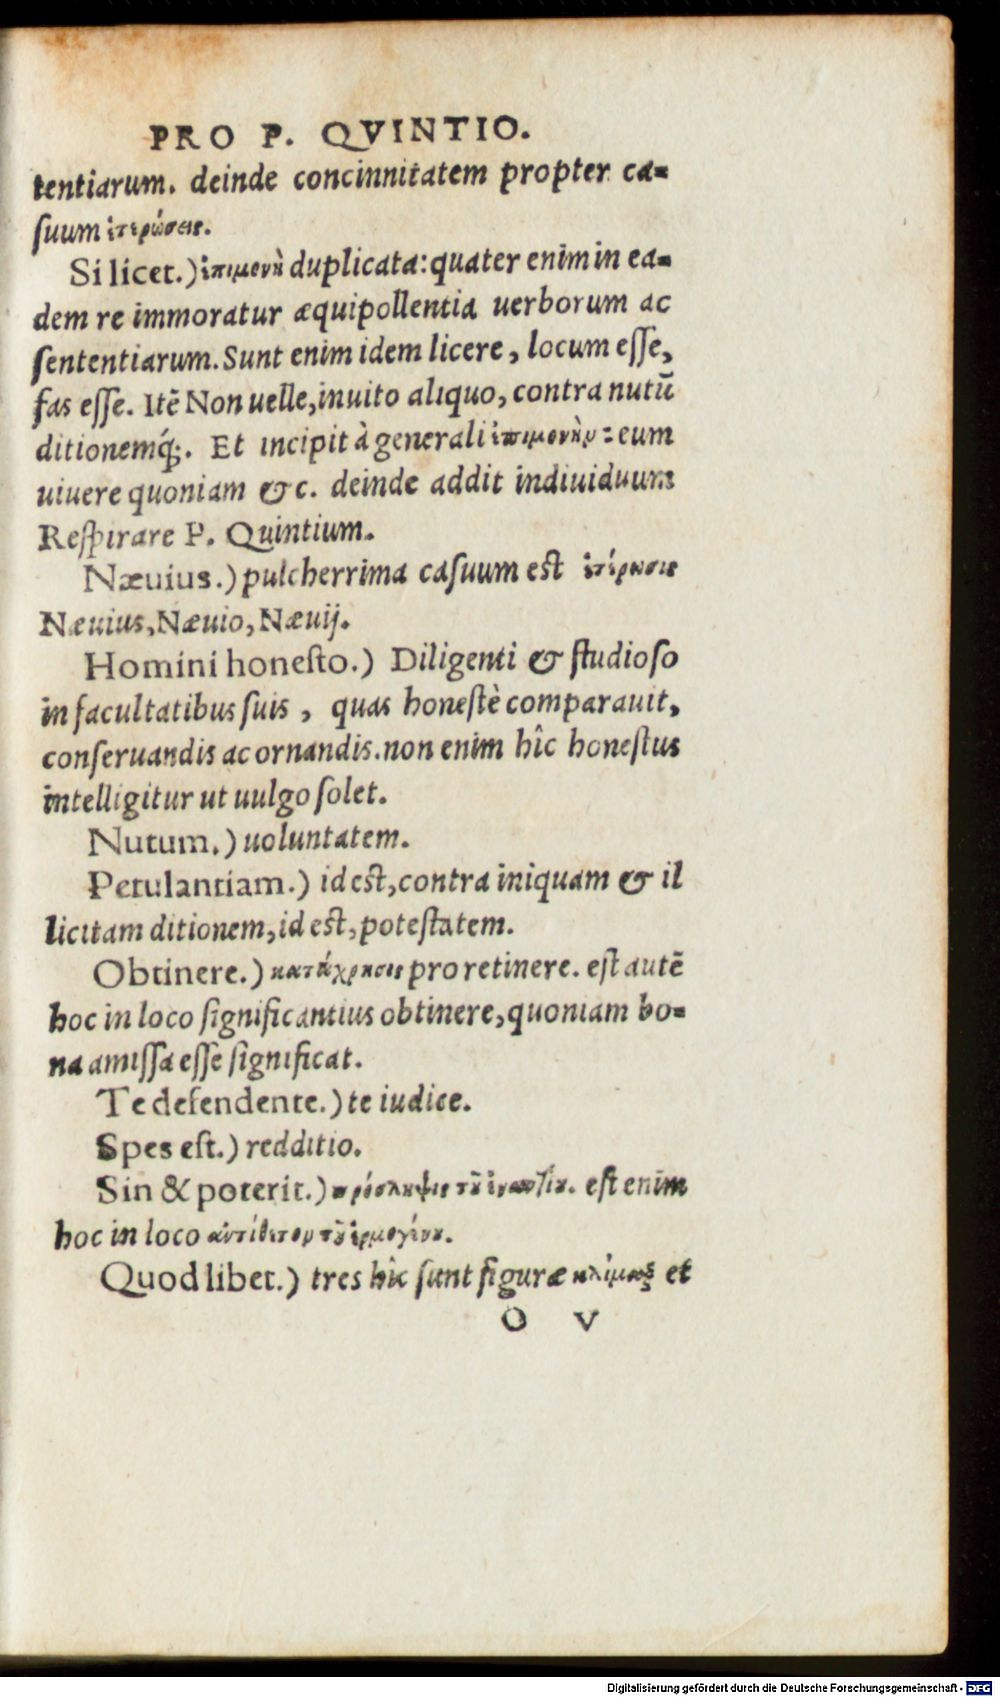 PRO P. QVINTIO.
tentiarum. deinde concinnitatem propter ca-
suum ἑτερώσεις.
Si licet.) ἐπιμονὴ duplicata: quater enim in ea-
dem re immoratur æquipollentia uerborum ac
sententiarum. Sunt enim idem licere, locum esse,
fas esse. Itē Non uelle, inuito aliquo, contra nutū
ditionemq́;. Et incipit à generali ἐπιμονὴν: eum
uiuere quoniam &c. deinde addit indiuiduum
Respirare P. Quintium.
Næuius.) pulcherrima casuum est ἑτέρωσις
Næuius, Næuio, Næuij.
Homini honesto.) Diligenti & studioso
in facultatibus suis, quas honestè comparauit,
conseruandis ac ornandis. non enim hîc honestus
intelligitur ut uulgo solet.
Nutum.) uoluntatem.
Petulantiam.) id est, contra iniquam & il
licitam ditionem, id est, potestatem.
Obtinere.) κατάχρησις pro retinere. est autē
hoc in loco significantius obtinere, quoniam bo-
na amissa esse significat.
Te defendente.) te iudice.
Spes est.) redditio.
Sin & poterit.) πρόσληψις τοῦ ἐναντίου. est enim
hoc in loco ἀντίθετον τοῦ ἑρμογένου.
Quod libet.) tres hîc sunt figuræ κλίμαξ et
O V
Digitalisierung gefördert durch die Deutsche Forschungsgemeinschaft - DFG